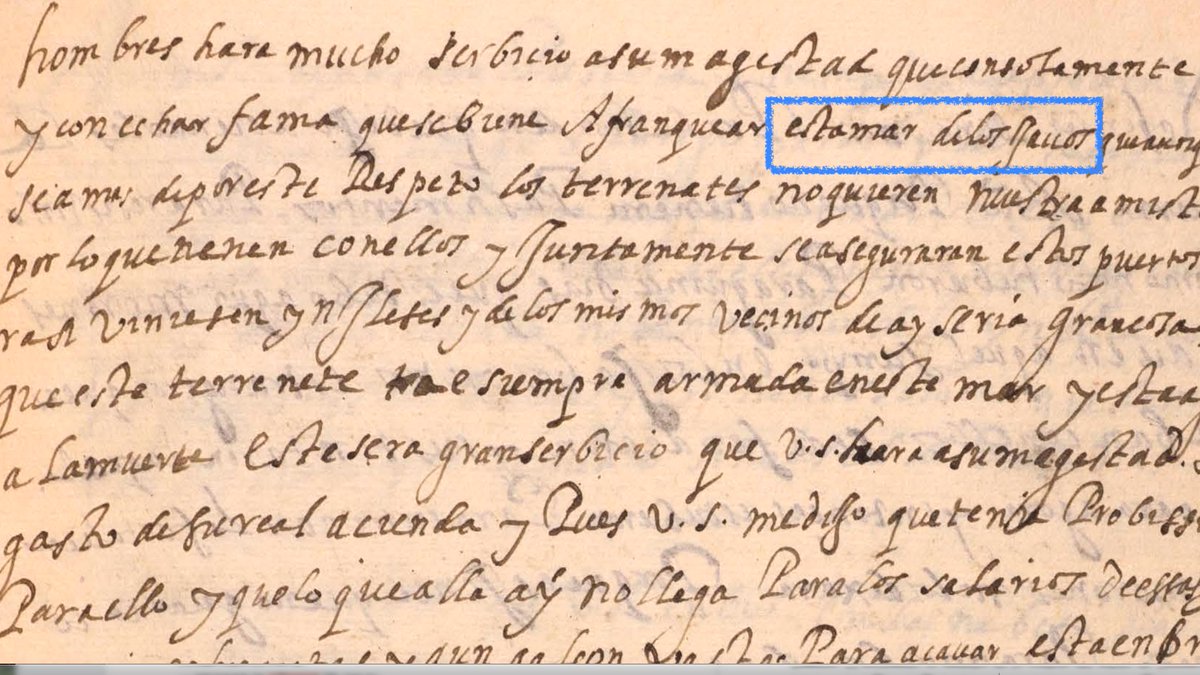 hombres hara mucho serbicio asumagestad queconsolamente
y con echar fama quesebiene Afranquear estamar delos Jauos queaora
siamas deporeste Respeto los terrenates noquieren nuestra amist
por loquetienen conellos y Juntamente seaseguraran estos puertos
rasi Viniesen yn Jleses y delos mismos vecinos deay seria grancosa
que este terrenete trae siempre armada eneste mar y estaa
a lamuerte Estesera granserbicio que V.S. hara asumagestad.
gasto desureal acienda y Pues V.S. medijo quetenia Probiss
Paraello y quelo quealla ay nollega Paralos salarios deessa
y aun Para acauar estaenbr